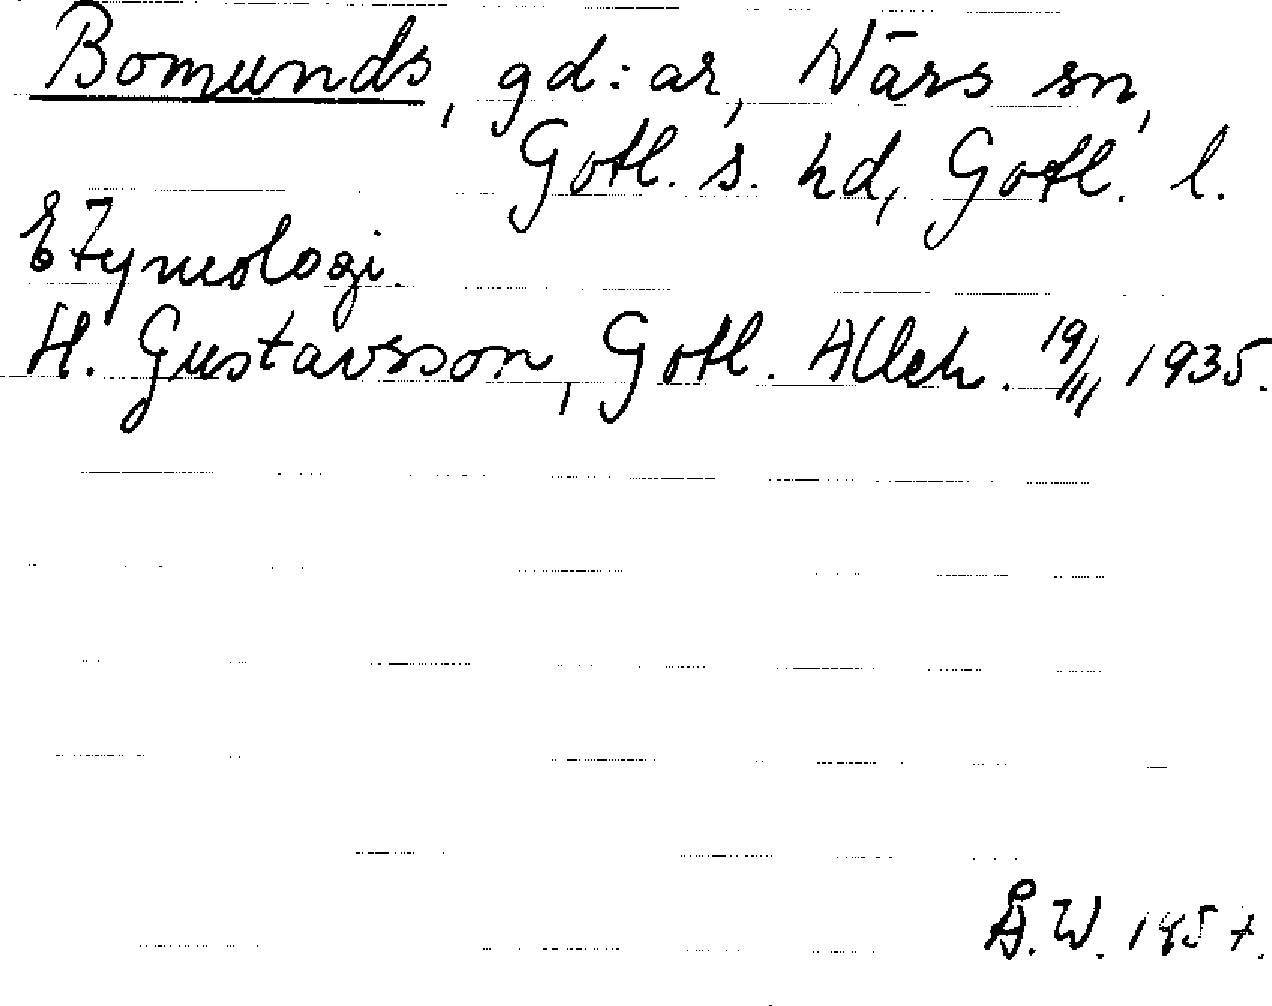 Bomunds, gd:ar, Närs sn,
Gotl. s. hd, Gotl. l.
Etymologi.
H. Gustavsson, Gotl. Alleh. 19/III 1935.
Å.W. 1957.